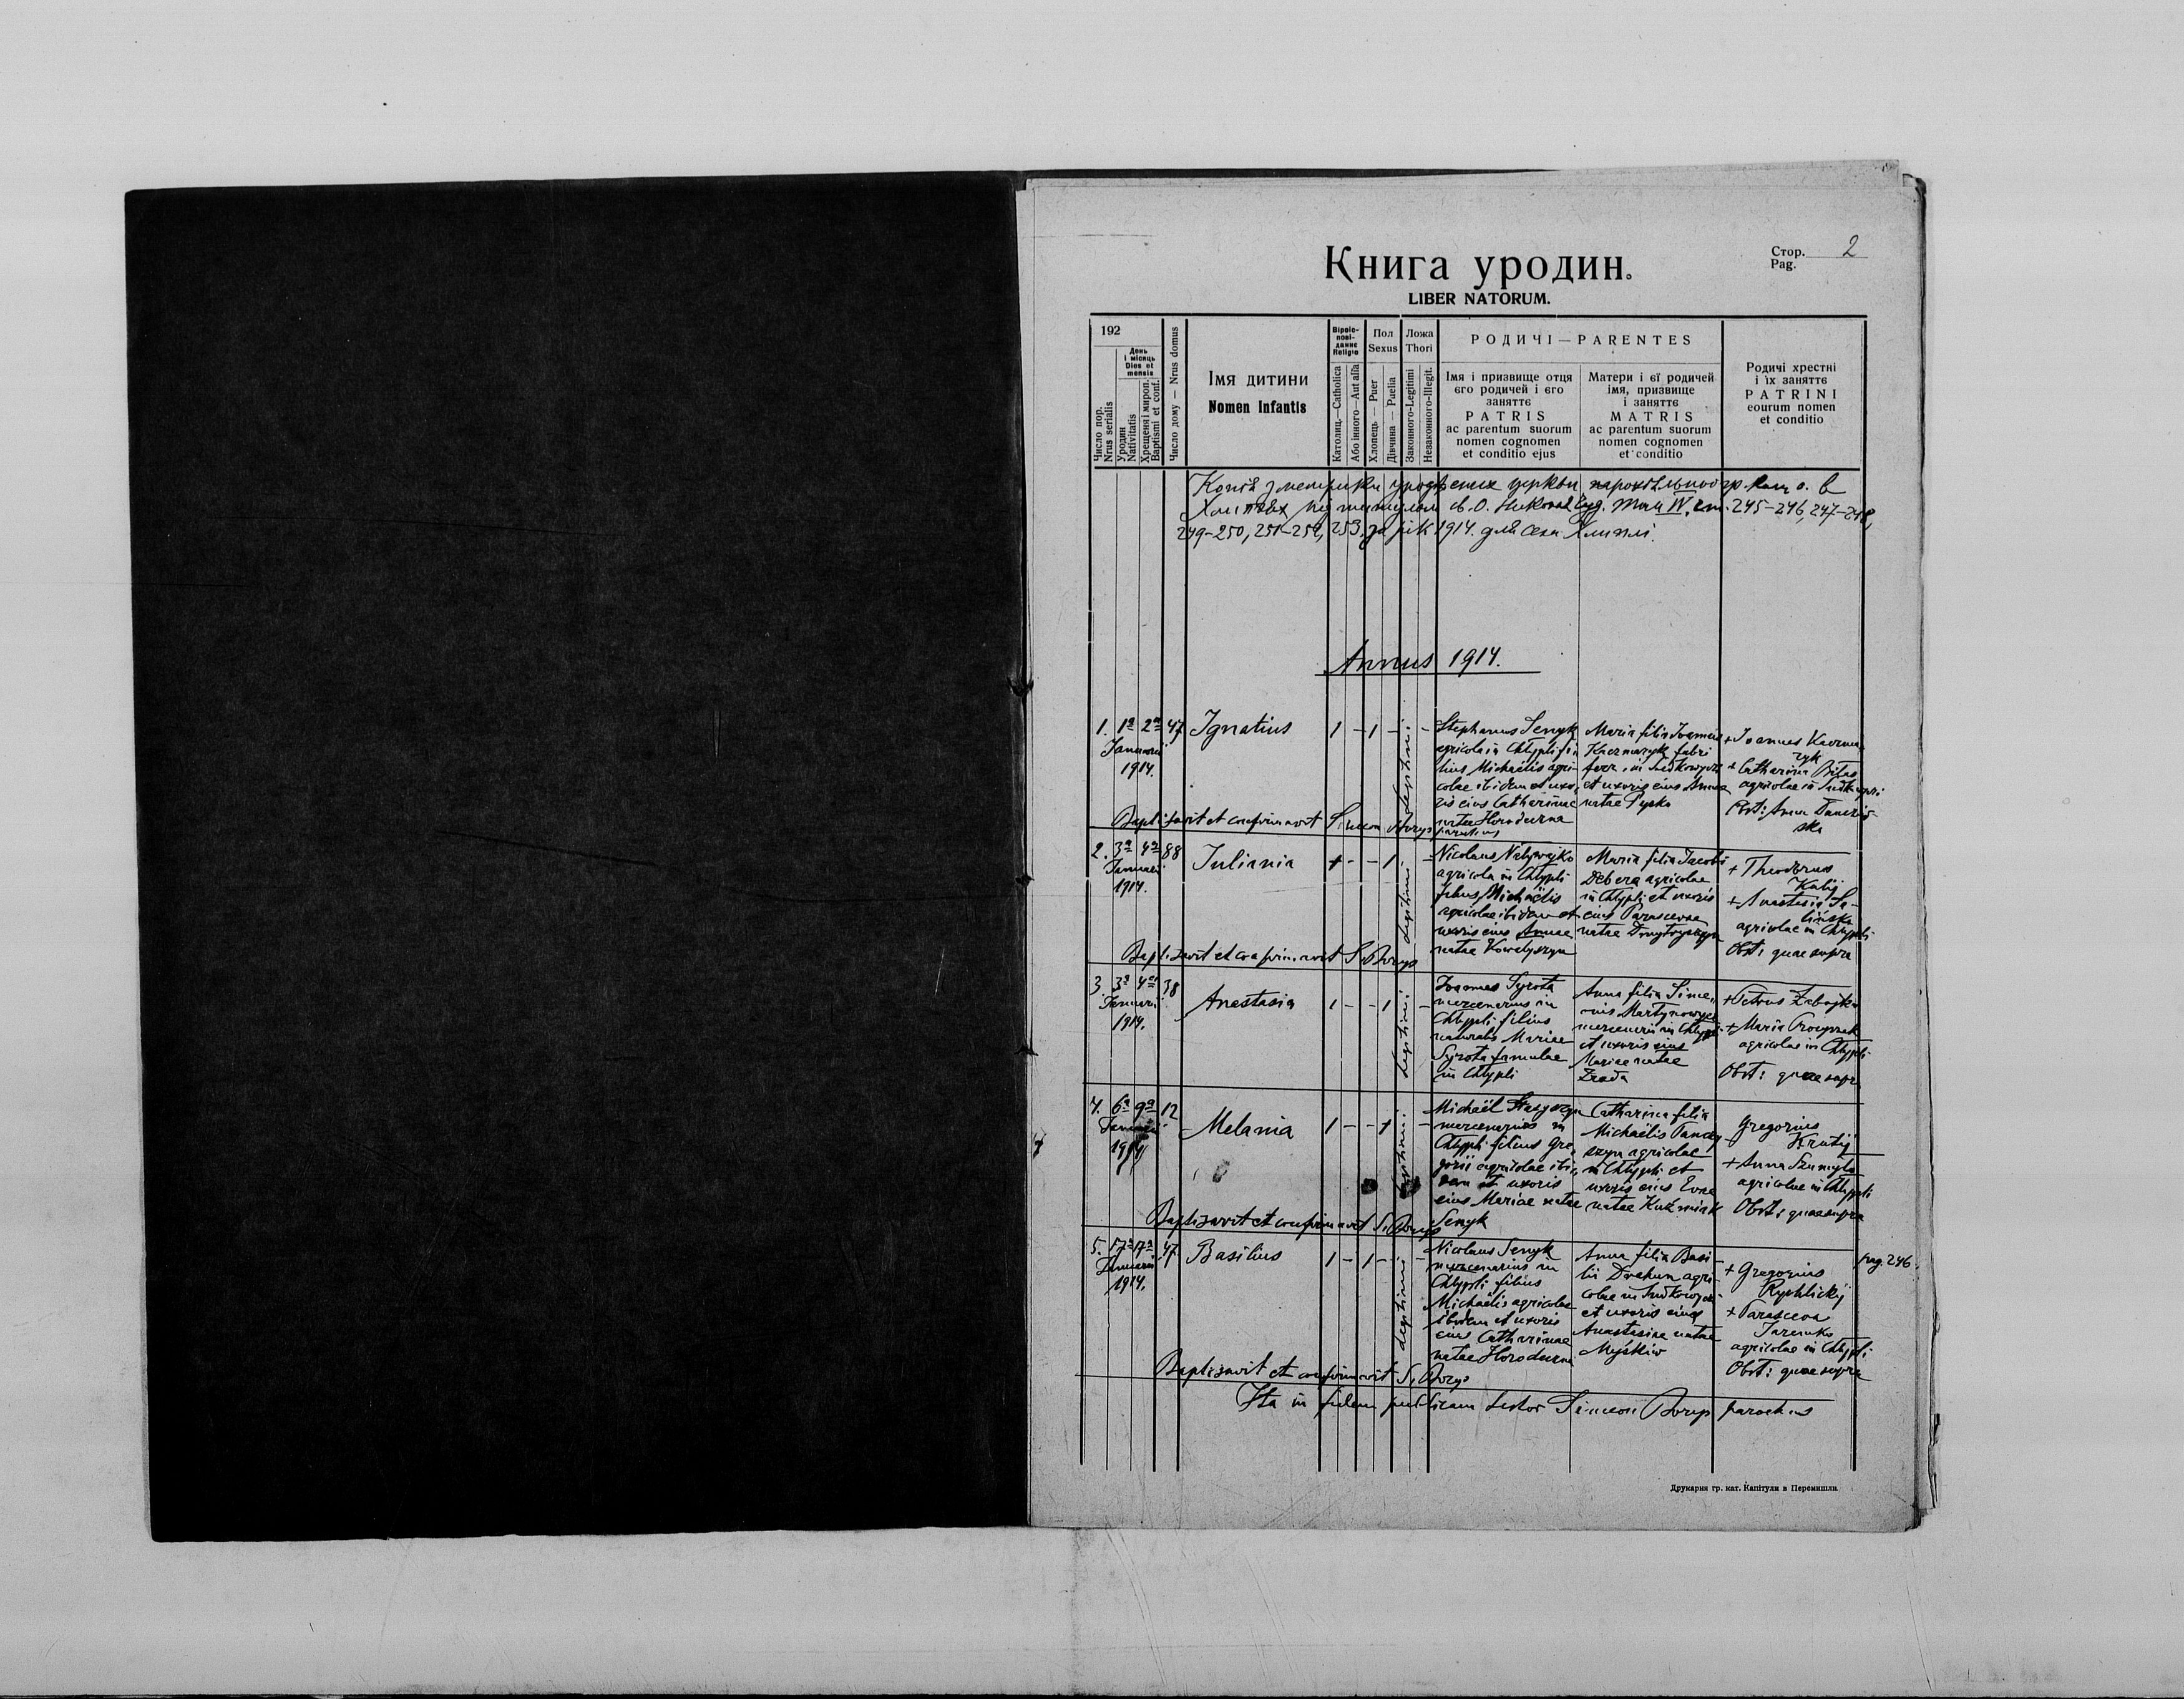 Стор. 2
Pag.
Книга уродин.
LIBER NATORUM.
192
Число пор.
Nrus serialis
День
і місяць
Dies et
mensis
Уродин
Nativitatis
Хрещеня і мироп.
Baptismi et conf.
Число дому — Nrus domus
Імя дитини
Nomen Infantis
Віроіс-
пові-
данне
Religio
Католиц.—Catholica
Або інного—Aut alia
Пол
Sexus
Хлопець — Puer
Дівчина — Puella
Ложа
Thori
Законного-Legitimi
Незаконного-Illegit.
РОДИЧІ—PARENTES
Імя і призвище отця
єго родичей і єго
заняттє
PATRIS
ac parentum suorum
nomen cognomen
et conditio ejus
Матери і єї родичей
імя, призвище
і заняттє
MATRIS
ac parentum suorum
nomen cognomen
et conditio
Родичі хрестні
і їх заняттє
PATRINI
eourum nomen
et conditio
Копія з метрики уроджених церкви парохіяльної гр. кат. о. в
св. О. Николая Чуд. Том IV. ст. 245-246, 247-248,
249-250, 251-252, 253. за рік 1914. для села Хлиплі.
Annus 1914.
1. 1ª 2ª 47
Januarii
1914.
Ignatius
1 - 1 - legitimi -
Stephanus Senyk
agricola in Chlypli fi
lius Michaëlis agri-
colae ibidem et uxo
ris eius Catharinae
natae Horodeczna
Maria filia Joannis
Kaczmaryk fabri
ferr. in
et uxoris eius Annae
natae Pyska
+ Joannes Kaczma
ryk
+ Catharina
agricolae in
Obst: Anna
Baptizavit et confirmavit Simeon Borys parochus
2. 3ª 4ª 88
Januarii
1914.
Juliania
1 - - 1 legitimi -
Nicolaus Nalywajko
agricola in Chlypli
filius Michaëlis
agricolae ibidem et
uxoris eius Annae
natae Kowalyszyn
Maria filia Jacobi
Debera agricolae
in Chlypli et uxoris
eius Parascevae
natae Dmytryszyn
+ Theodorus
Kulij
+ Anastasia Sa-
lińska
agricolae in Chlypli
Obst: quae supra
Baptizavit et confirmavit S. Borys
3. 3ª 4ª 38
Januarii
1914.
Anastasia
1 - - 1 legitimi -
Joannes Syrota
mercenarius in
Chlypli filius
naturalis Mariae
Syrota famulae
in Chlypli
Anna filia Sime-
onis Martynowycz
mercenarii in Chlypli
et uxoris eius
Mariae natae
Zrada
+ Petrus
+ Maria
agricolae in Chlypli
Obst: quae supra
4. 6ª 9ª 12
Januarii
1914
Melania
1 - - 1 legitimi -
Michaël
mercenarius in
Chlypli filius Gre
gorii agricolae ibi
dem et uxoris
eius Mariae natae
Senyk
Catharina filia
Michaëlis Pancy
szyn agricolae
in Chlypli et
uxoris eius Evae
natae Kuźmiak
Gregorius
Krutij
+ Anna Szumylo
agricolae in Chlypli
Obst: quae supra
Baptizavit et confirmavit S. Borys
5. 17ª 17ª 47
Januarii
1914.
Basilius
1 - 1 - legitimi -
Nicolaus Senyk
mercenarius in
Chlypli filius
Michaëlis agricolae
ibidem et uxoris
eius Catharinae
natae Horodeczna
Anna filia Basi-
lii Drahun agri-
colae in
et uxoris eius
Anastasiae natae
Myśkiw
+ Gregorius
Rychlickij
+ Parasceva
Jaremko
agricolae in Chlypli
Obst: quae supra
pag. 246
Baptizavit et confirmavit S. Borys
Ita in fidem publicam testor Simeon Borys parochus
Друкарня гр. кат. Капітули в Перемишли